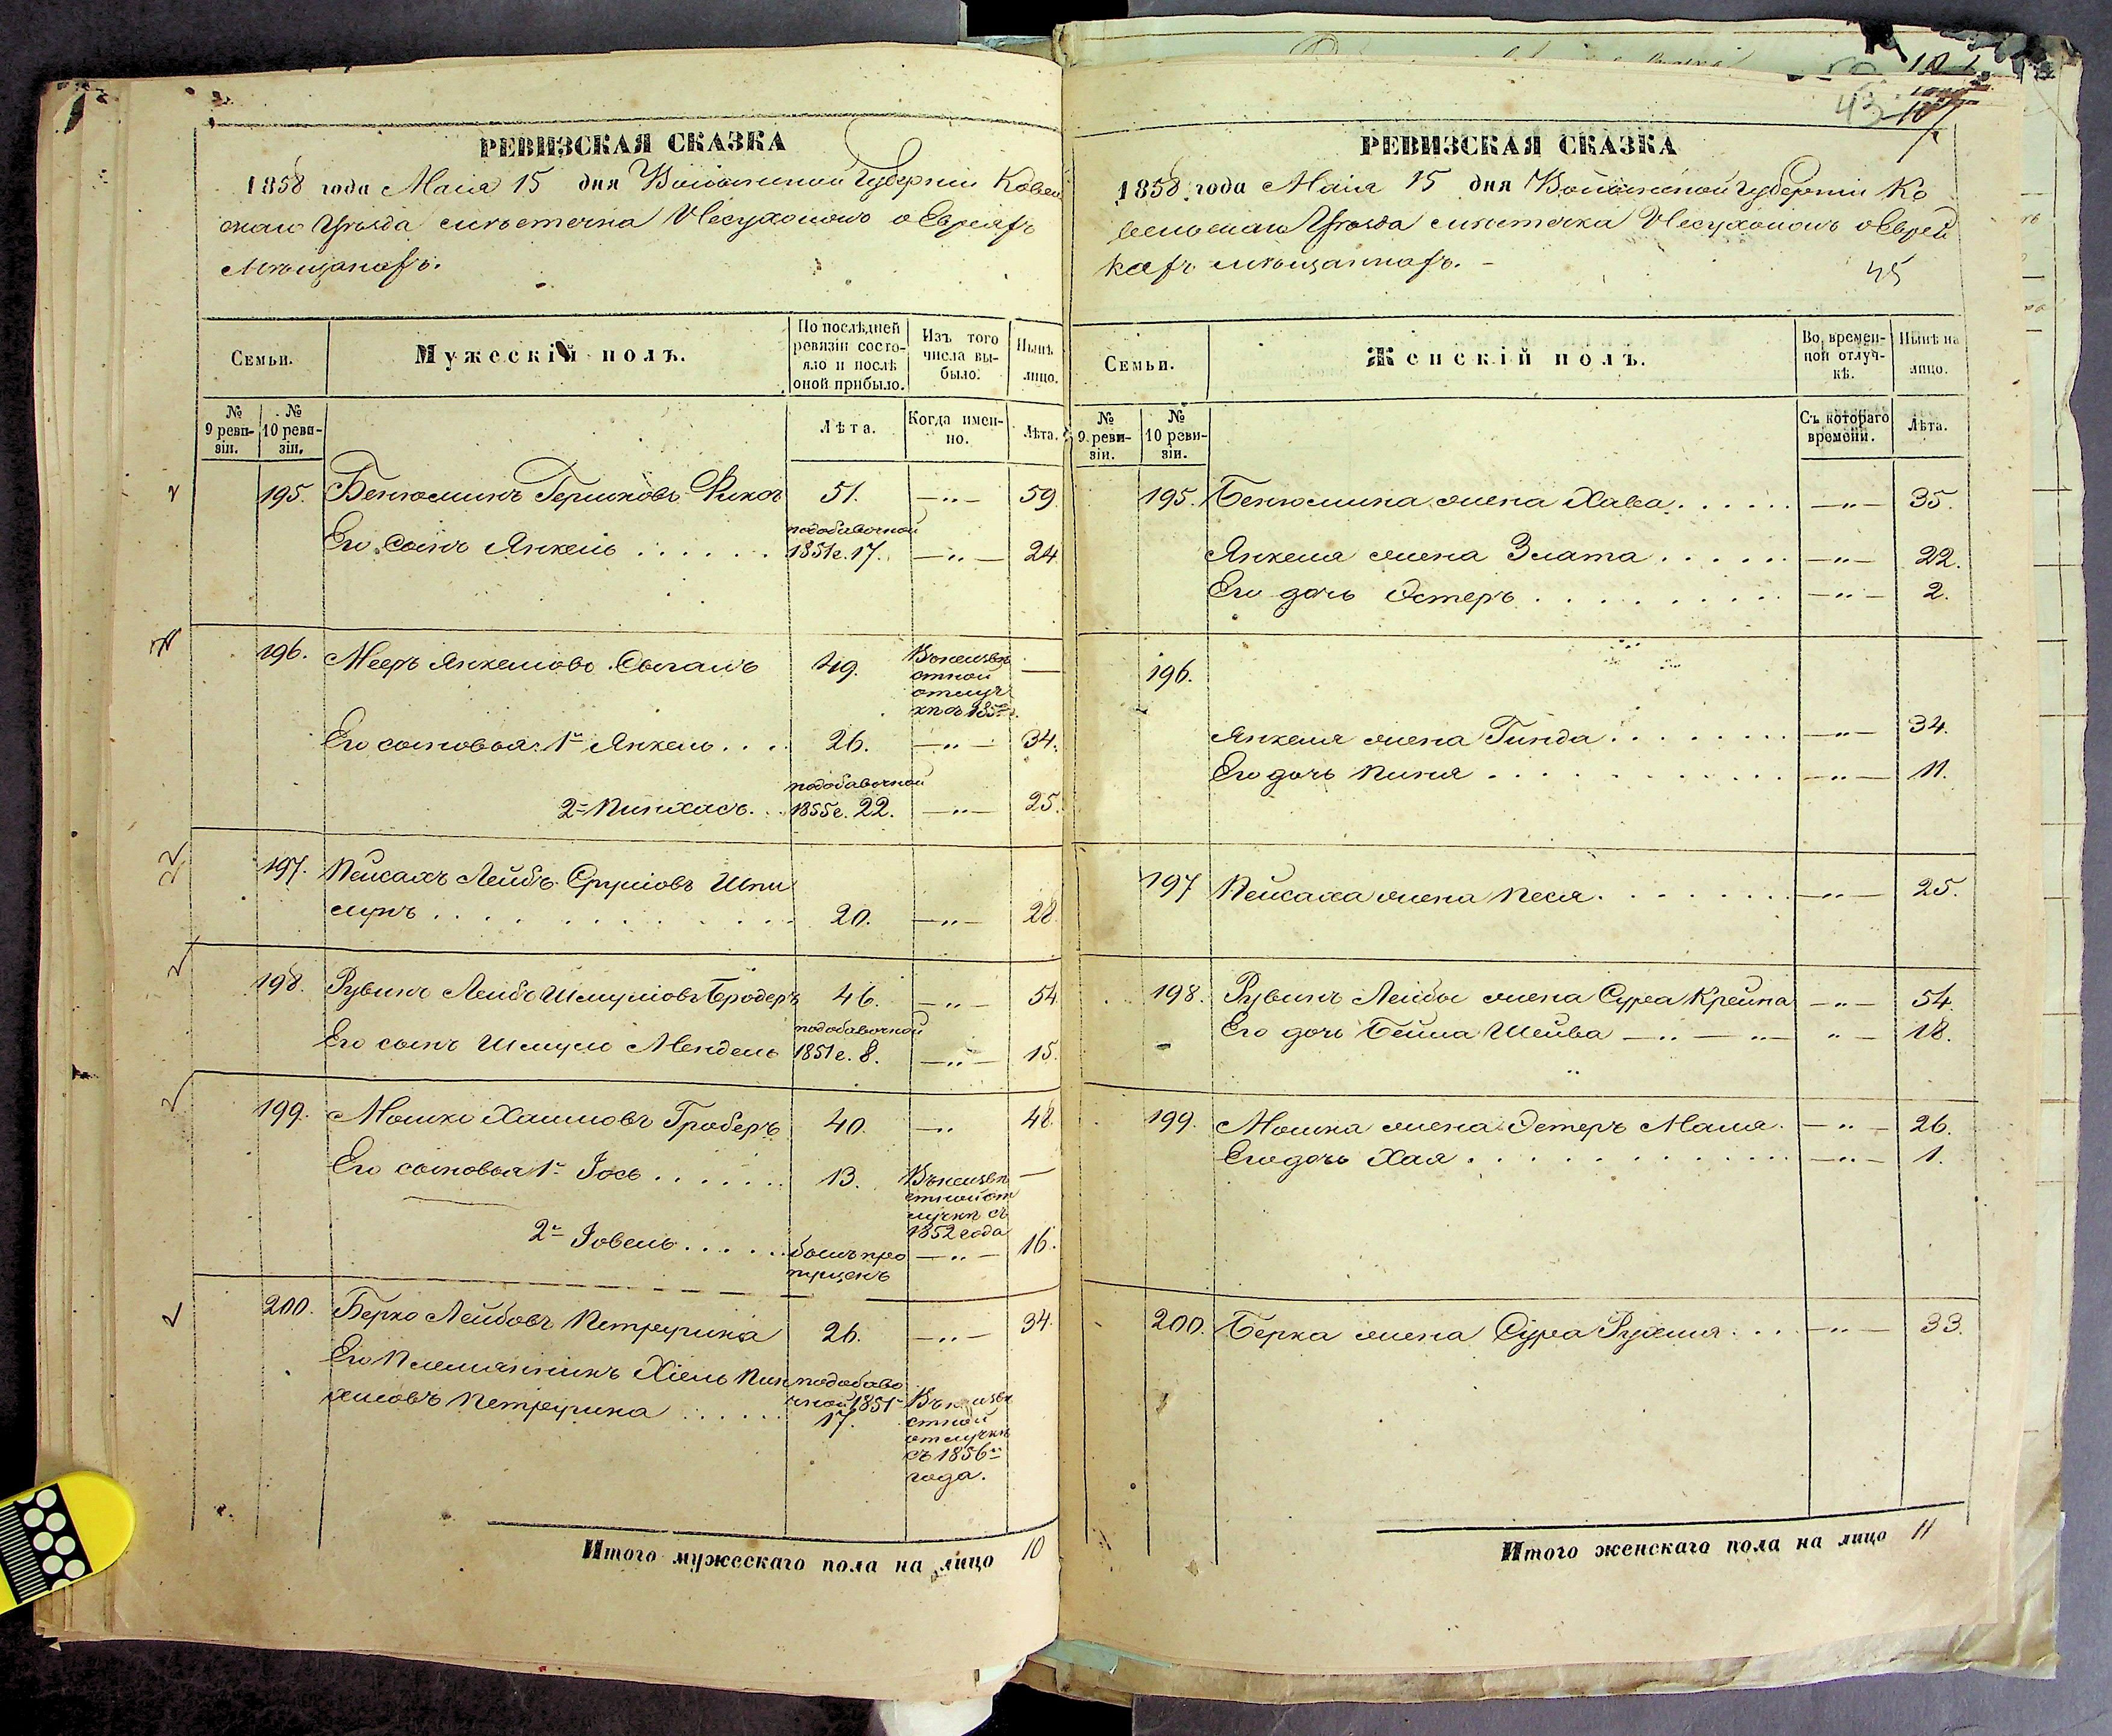 РЕВИЗСКАЯ СКАЗКА
1858 года Маiя 15 дня Волынской Губернiи Ковель
скаго Уѣзда мѣстечка Несухоижъ о Евреяхъ
Мѣщанахъ.
Семьи.
Мужескiй полъ.
По послѣдней ревизiи состояло и послѣ оной прибыло.
Изъ того числа выбыло.
Нынѣ на лицо.
№ 9 ревизiи.
№ 10 ревизiи.
Лѣта.
Когда именно.
Лѣта.
195. Бенюминъ Гершковъ 51. —"— 59
подобавочной
Его Сынъ Янкель . . . . . . 1851г. 17. —"— 24
196. Мееръ Янкелювъ 49. Въ неизвѣ —
стной
отлуч
Его сыновья: 1й Янкель . . . . 26. —"— 34.
подобавочной
2й Пинхасъ. . . 1855г. 22. —"— 25.
197. Пейсахъ Лейбъ Сруліовъ Шпи
. . . . . . . . . . . . 20. —"— 28
198. Рувинъ Лейбъ Шмуліовъ Бродеръ 46. —"— 54
подобавочной
Его сынъ Шмуль Мендель 1851г. 8. —"— 15.
199. Мошко Хаимовъ Гроберъ 40. —" 48.
Его сыновья 1й Iось . . . . . . 13. Въ неизвѣ —
стной от
лучкѣ съ
1852 года
2й Iовель . . . . . . былъ про —"— 16.
пущенъ
200. Берко Лейбовъ Петрушка 26. —"— 34.
Его Племянникъ Хіель Пин подобаво
хасовъ Петрушка . . . . . чной 1851г Въ неизвѣ
17. стной
отлучкѣ
съ 1856го
года.
Итого мужескаго пола на лицо 10
43
107
РЕВИЗСКАЯ СКАЗКА
1858 года Маiя 15 дня Волынской Губернiи Ко
вельскаго Уѣзда мѣстечка Несухоижъ о Еврей
кахъ мѣщанкахъ. —
45
Семьи.
Женскiй полъ.
Во временной отлучкѣ.
Нынѣ на лицо.
№ 9 ревизiи.
№ 10 ревизiи.
Съ котораго времени.
Лѣта.
195. Бенюмина жена Хава . . . . . . —"— 35.
Янкеля жена Злата . . . . . . —"— 22.
Его дочь Эстеръ . . . . . . . . . . —"— 2.
196.
Янкеля жена Гинда . . . . . . . . —"— 34.
Его дочь Пиня . . . . . . . . . . . —"— 11.
197 Пейсаха жена Песя . . . . . . . . —"— 25.
198. Рувинъ Лейбы жена Сура Крейна —"— 54.
Его дочь Бейла Шейва —"—"— "— 18.
199. Мошка жена Эстеръ Маля . —"— 26.
Его дочь Хая . . . . . . . . . . . . —"— 1.
200. Берка жена Сура Рухля . . . —"— 33.
Итого женскаго пола на лицо 11